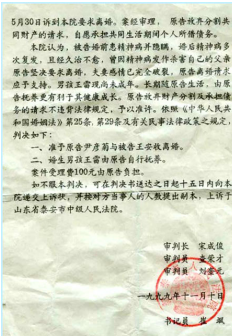 5月30日诉到本院要求离婚。案经审理, 原告放弃分割共
同财产的请求, 自愿承担共同生活期间个人所借债务。
本院认为, 被告婚前患精神病并隐瞒, 婚后精神病多
次复发, 且经久治不愈, 曾因精神病发作杀害自己的父亲
原告坚决要求离婚, 夫妻感情已完全破裂, 原告离婚请求
应予支持。男孩王雷现尚未成年。长期随原告生活, 由原
告抚养更有利于其健康成长。原告放弃财产分割及承担债
务的请求不违背法律规定, 予以准许。依照《中华人民共
和国婚姻法》第25条, 第29条及有关民事法律政策之规定,
判决如下:
一、准予原告尹彦菊与被告王安收离婚。
二、婚生男孩王雷由原告自行抚养。
案件受理费100元由原告负担。
如不服本判决, 可在判决书送达之日起十五日内向本
院递交上诉状, 并按对方当事人的人数提出副本, 上诉于
山东省泰安市中级人民法院。
审判长 宋成俊
审判员
审判员
一九九九年十一月十日
书记员